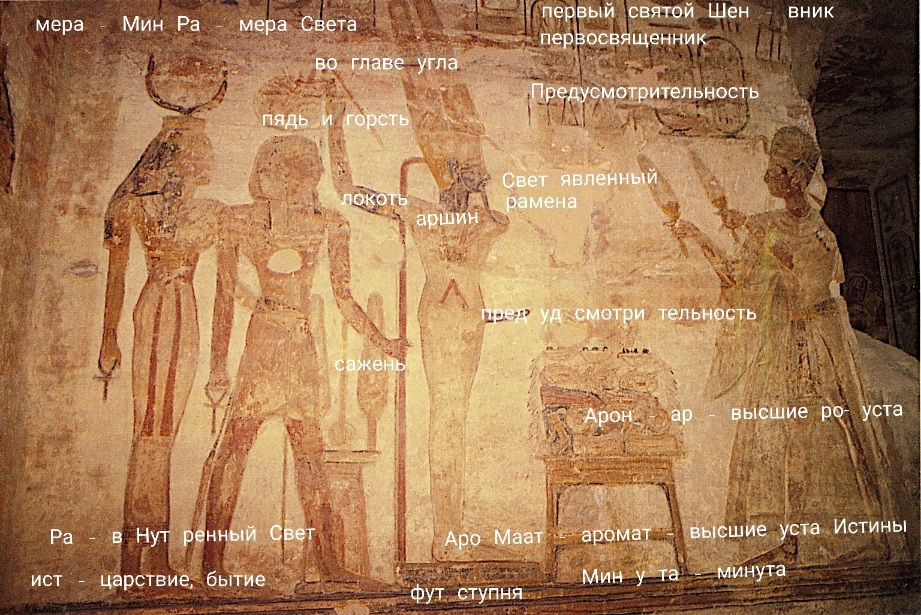 мера - Мин Ра - мера Света
первый святой Шен - вник
первосвященник
во главе угла
Предусмотрительность
пядь и горсть
Свет явленный
рамена
локоть
аршин
пред уд смотри тельность
сажень
Арон - ар - высшие ро- уста
Ра - в Нут ренный Свет
Аро Маат - аромат - высшие уста Истины
ист - царствие, бытие
Мин у та - минута
фут ступня